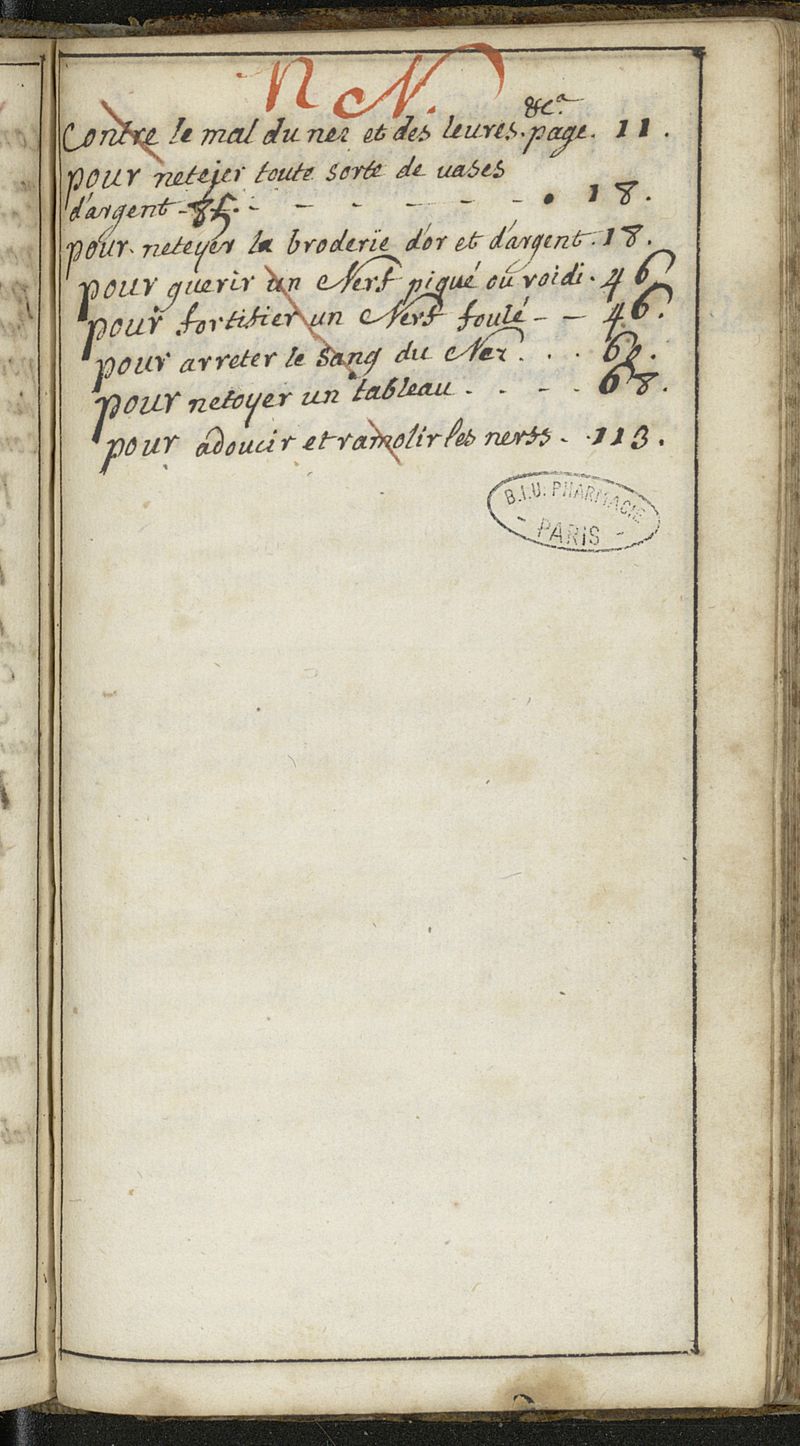 n N.
&c.a
Contre le mal du nez et des leures. page. 11.
pour netejer toute sorte de uases
d'argent - 85. - - - - - - . 18.
pour. neteyer la broderie d'or et d'argent. 18.
pour guerir un Nerf piqué ou roidi. 46.
pour fortifier un Nerf foulé - - 46.
pour arreter le sang du Nez . . .
pour netoyer un tableau - - - - 68.
pour adoucir et ramolir les nerfs - . 113.
B.I.U. PHARMACIE
- PARIS -